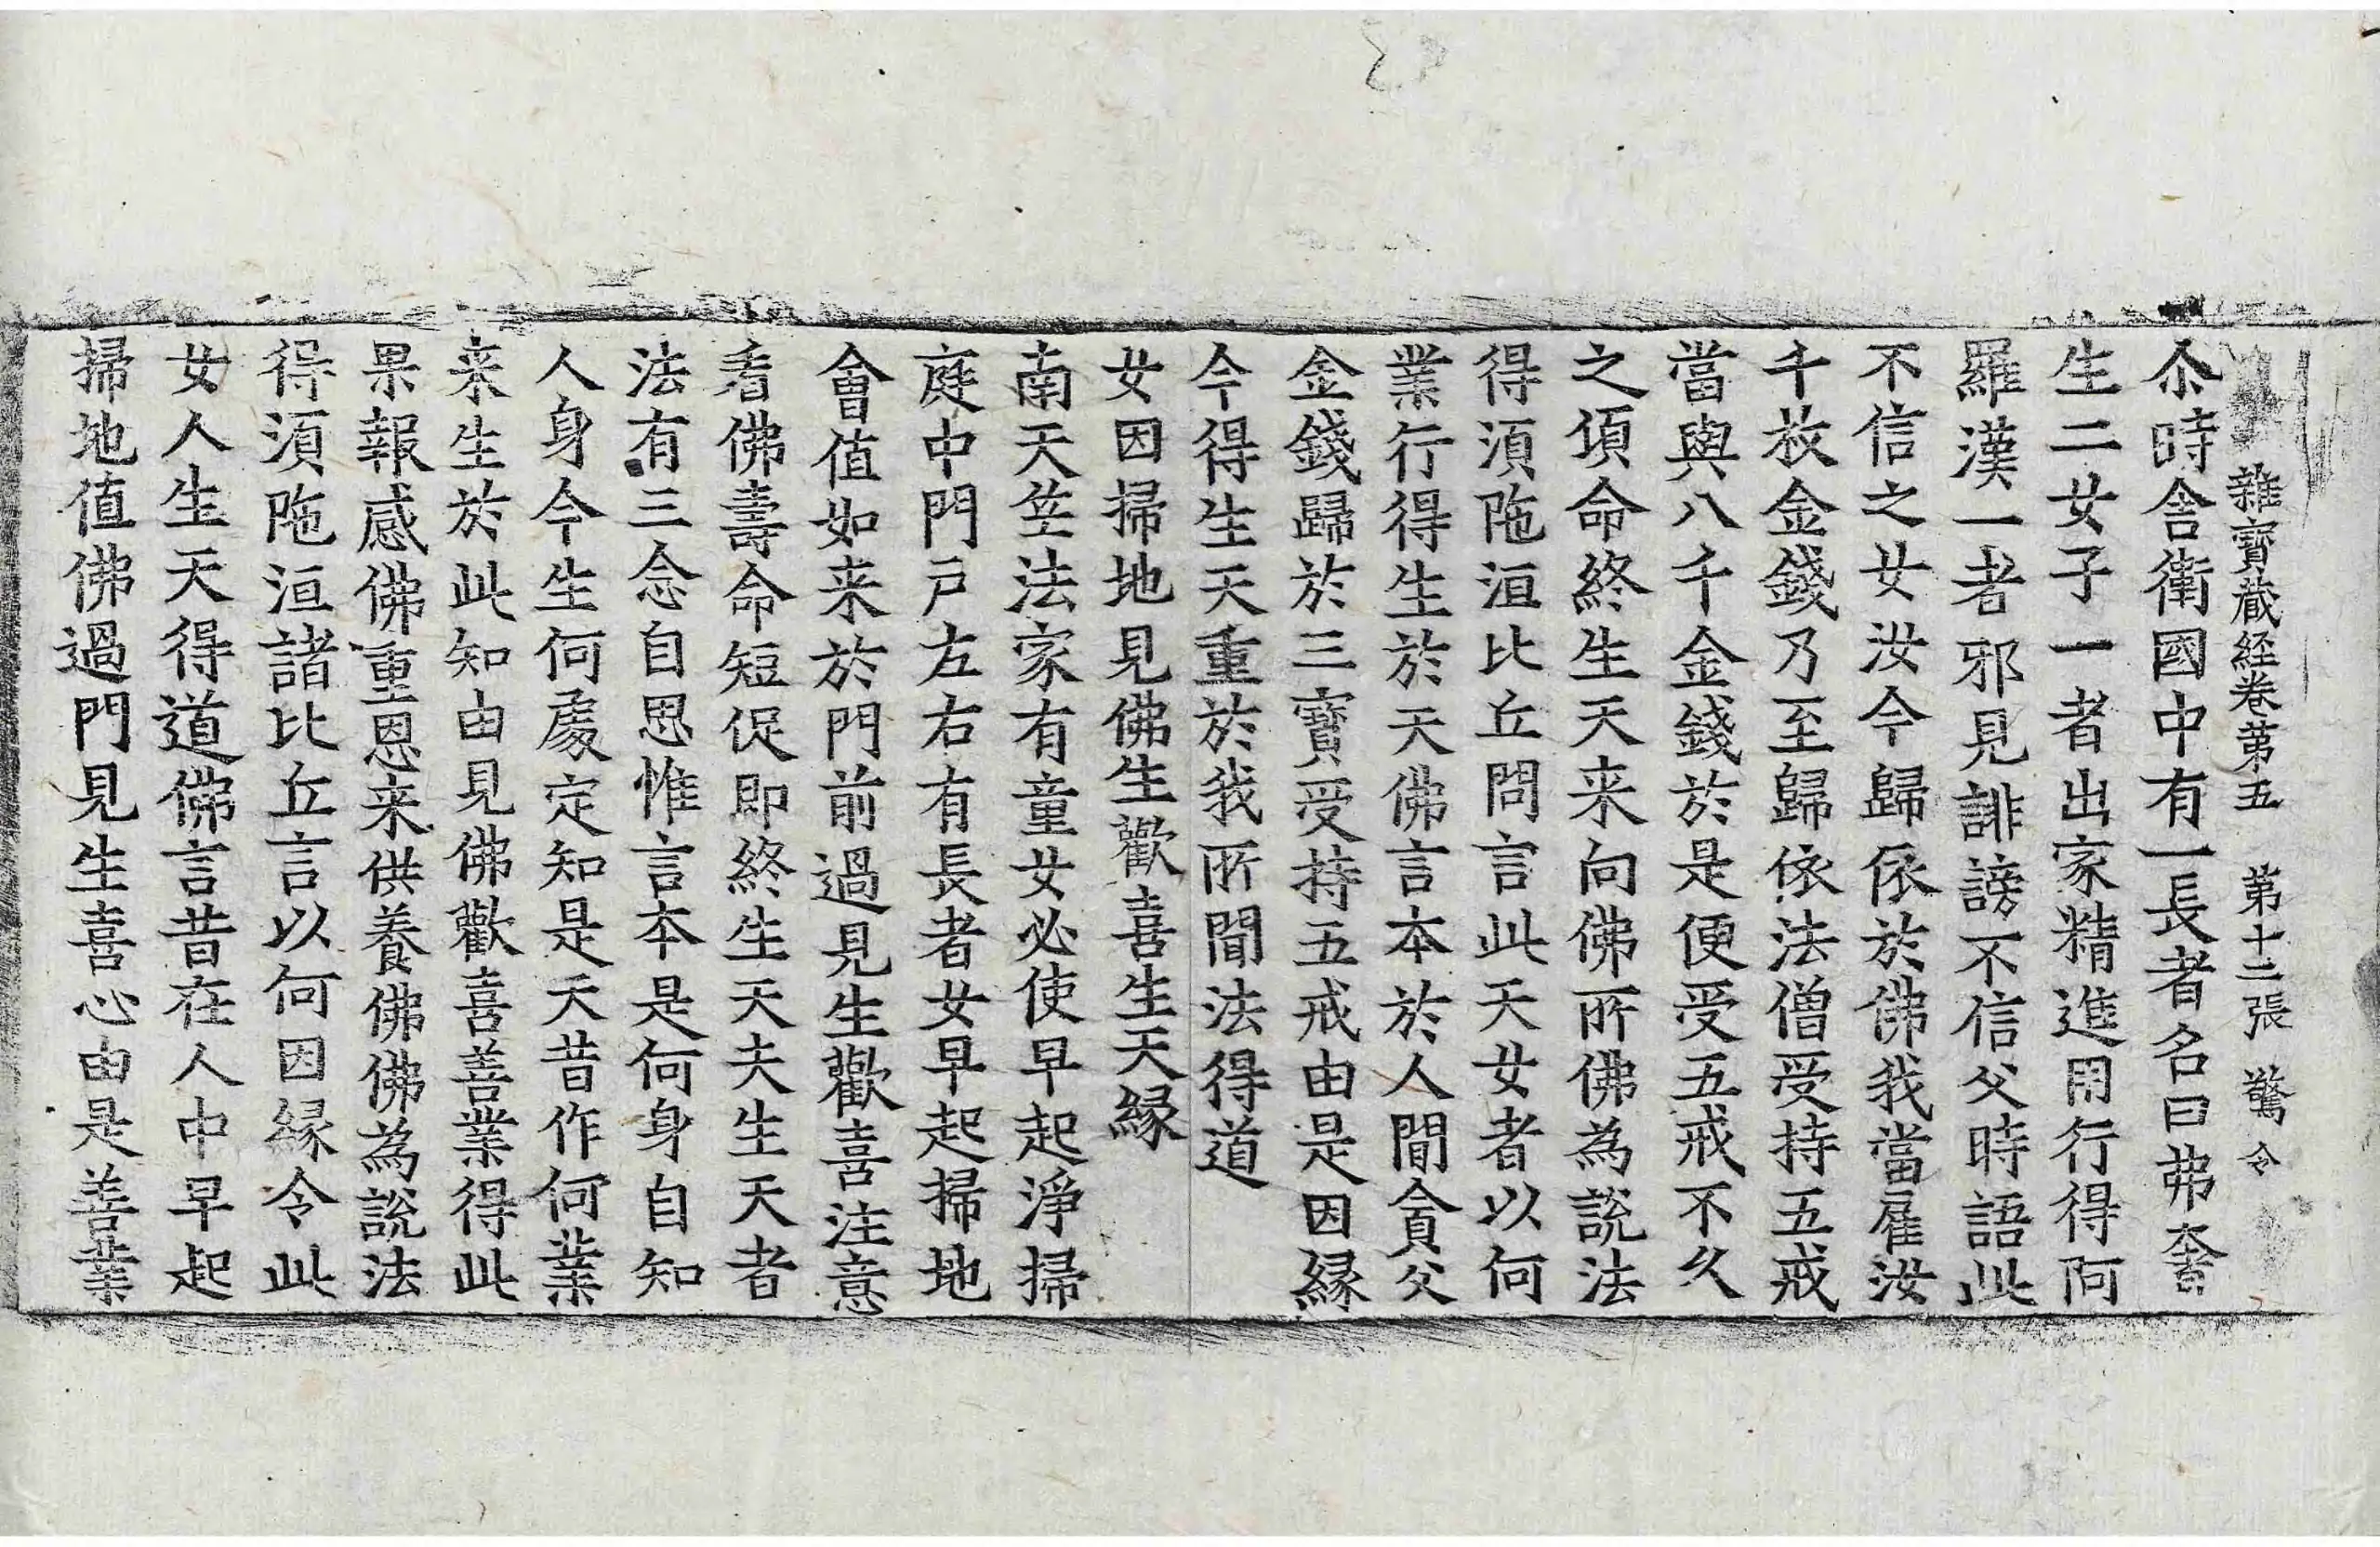 雜寶蔵經卷第五 第十二張 驚 令
尒時舎衛國中有一長者名曰弗奢
生二女子一者出家精進用行得阿
羅漢一者邪見誹謗不信父時語此
不信之女汝今歸依於佛我當雇汝
千枚金錢乃至歸依法僧受持五戒
當與八千金錢於是便受五戒不久
之頃命終生天来向佛所佛為說法
得湏陁洹比丘問言此天女者以何
業行得生於天佛言本於人間貪父
金錢歸於三寶受持五戒由是因縁
今得生天重於我所聞法得道
女因掃地見佛生歡喜生天縁
南天竺法家有童女必使早起淨掃
庭中門戶左右有長者女早起掃地
會值如来於門前過見生歡喜注意
看佛壽命短促即終生天夫生天者
法有三念自思惟言本是何身自知
人身今生何處定知是天昔作何業
来生於此知由見佛歡喜善業得此
果報感佛重恩来供養佛佛為說法
得湏陁洹諸比丘言以何因縁令此
女人生天得道佛言昔在人中早起
掃地值佛過門見生喜心由是善業